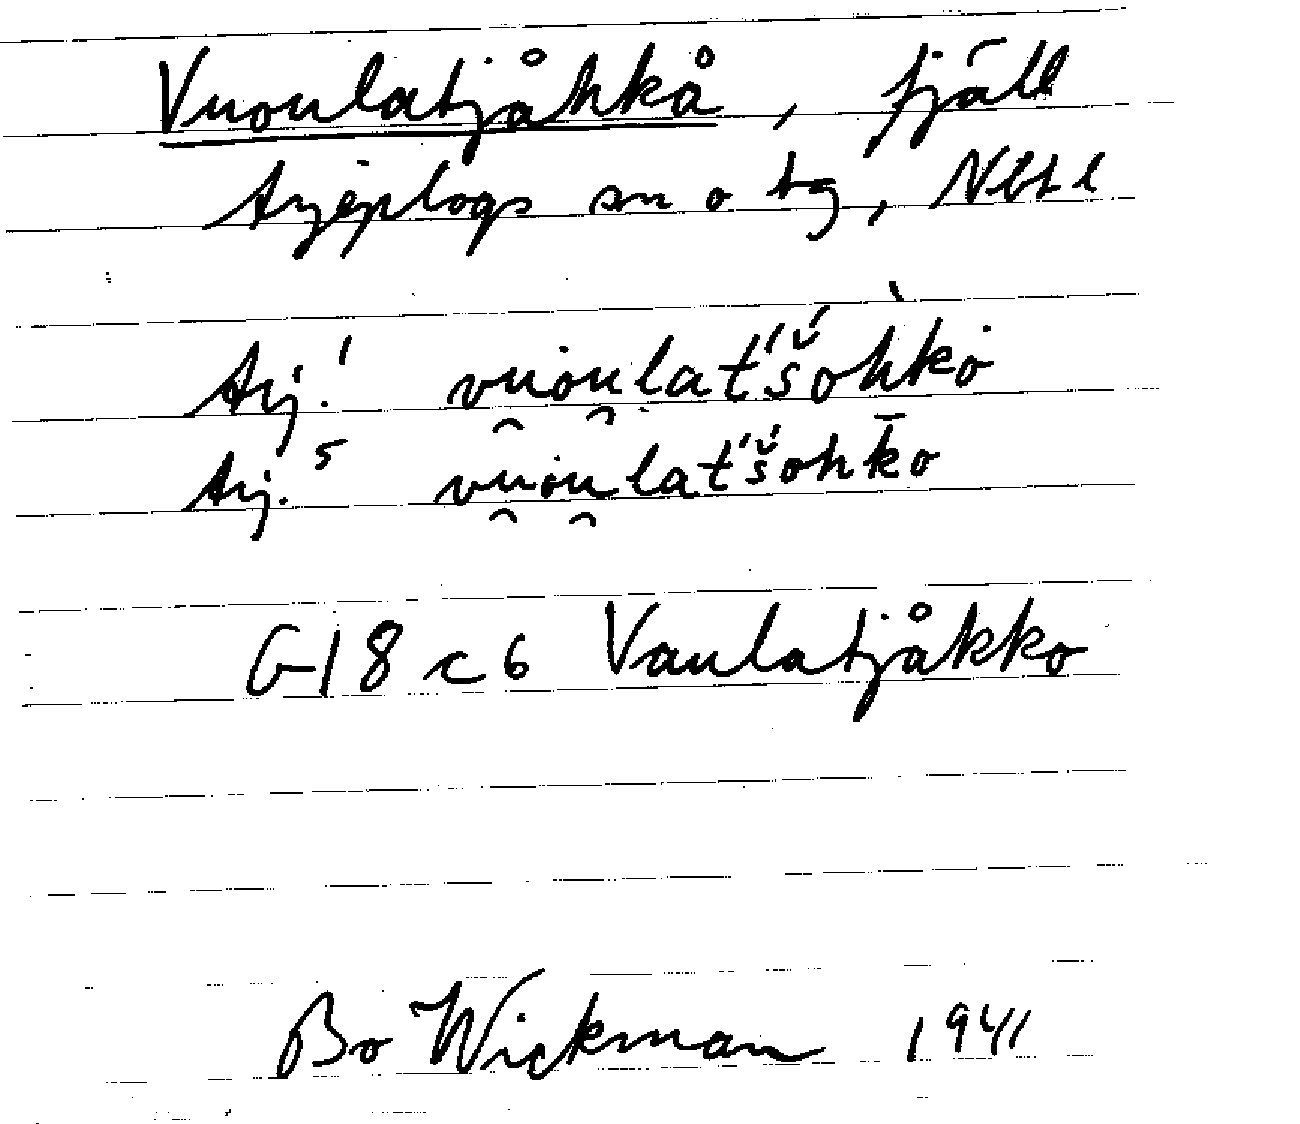 Vuoulatjåhkå, fjäll
Arjeplogs sn o tg, Nbtl
Arj.¹ vu̯ou̯latʹšʹohkò
Arj.⁵ vu̯ou̯latʹšʹohk̄o
G18 c6 Vaulatjåkko
Bo Wickman 1941